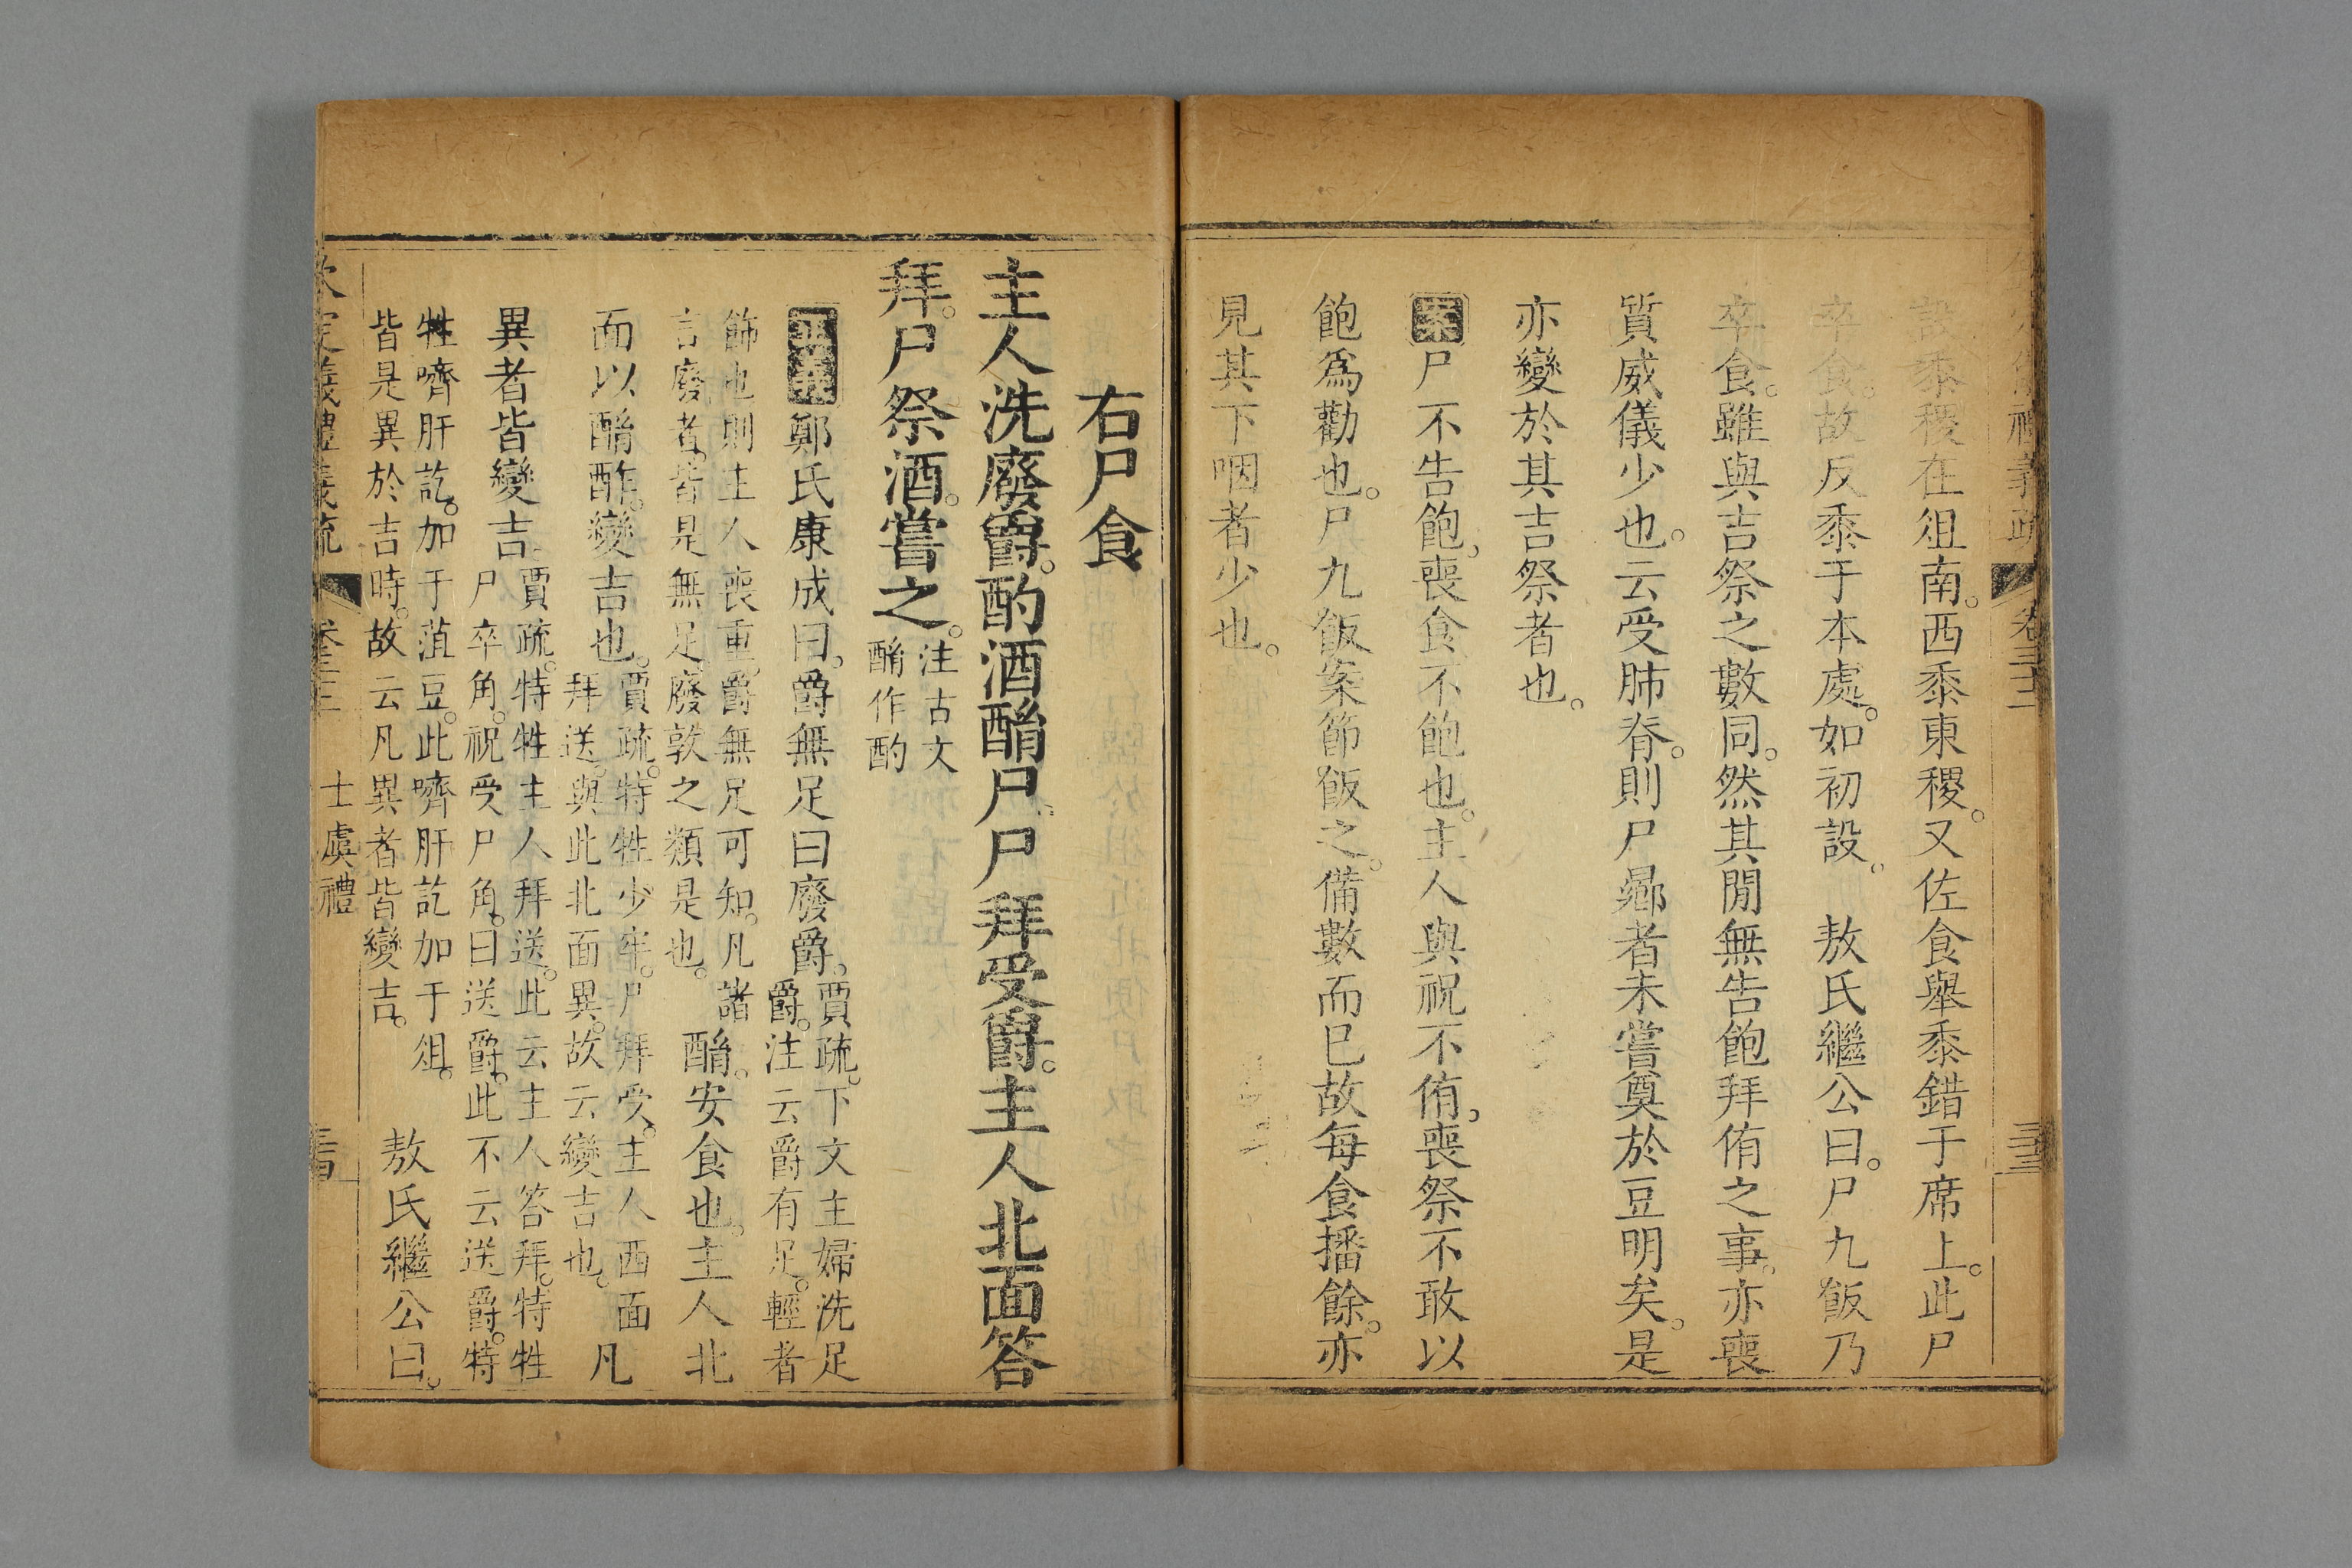 設黍稷在俎南。西黍東稷。又佐食舉黍錯于席上。此尸
卒食。故反黍于本處。如初設。敖氏繼公曰。尸九飯乃
卒食。雖與吉祭之數同。然其閒無告飽拜侑之事。亦喪
質威儀少也。云受肺脊。則尸鄉者未嘗奠於豆明矣。是
亦變於其吉祭者也。
案尸不告飽。喪食不飽也。主人與祝不侑。喪祭不敢以
飽爲勸也。尸九飯案節飯之。備數而已故每食播餘。亦
見其下咽者少也。
右尸食
主人洗廢爵。酌酒酳尸。尸拜受爵。主人北面答
拜。尸祭酒。嘗之。
注古文
酳作酌
正義鄭氏康成曰。爵無足曰廢爵。
賈疏。下文主婦洗足
爵。注云爵有足。輕者
飾也則主人喪重。爵無足可知。凡諸
言廢者。皆是無足。廢敦之類是也。
酳。安食也。主人北
面以酳酢。變吉也。
賈疏。特牲少牢。尸拜受。主人西面
拜送。與此北面異。故云變吉也。
凡
異者皆變吉。
賈疏。特牲主人拜送。此云主人答拜。特牲
尸卒角。祝受尸角。曰送爵。此不云送爵。特
牲嚌肝訖。加于菹豆。此嚌肝訖加于俎。
皆是異於吉時。故云凡異者皆變吉。
敖氏繼公曰。
欽定儀禮義疏 卷三十三 士虞禮 三十四